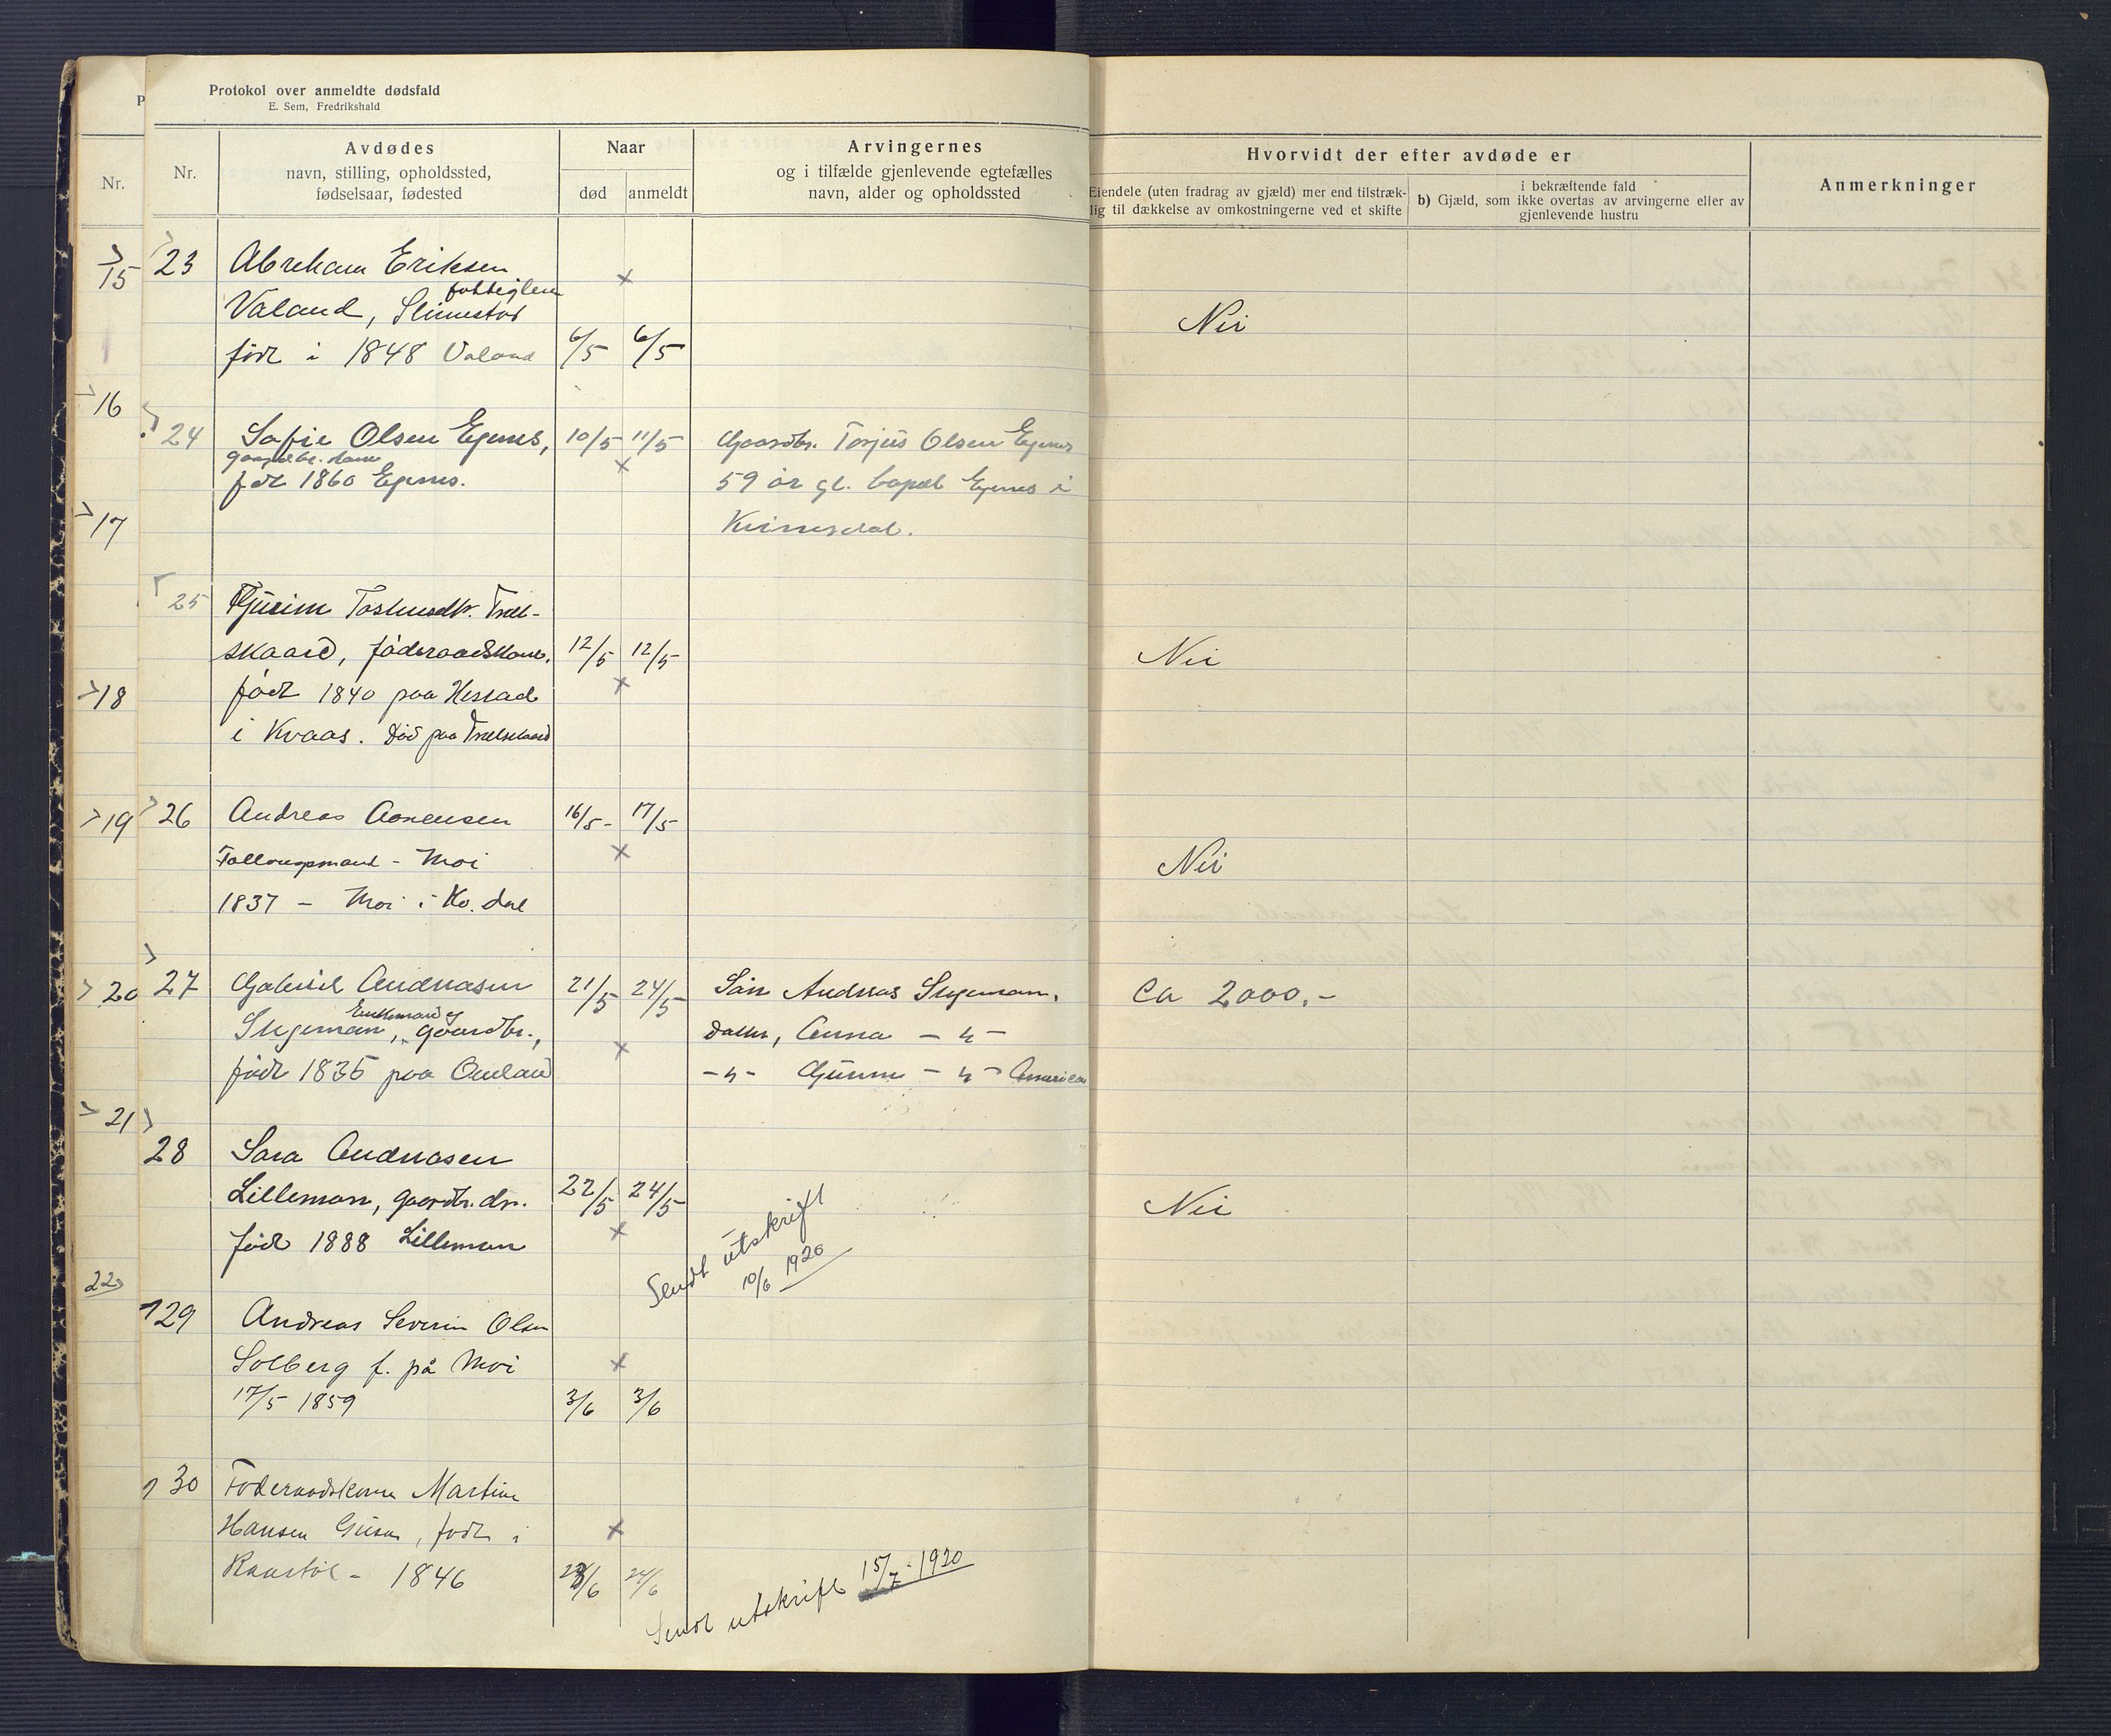 Protokol over anmeldte dødsfald
E. Sem, Fredrikshald
P
Nr.
Nr.
Avdødes
navn, stilling, opholdssted,
fødselsaar, fødested
Naar
død
anmeldt
Arvingernes
og i tilfælde gjenlevende egtefælles
navn, alder og opholdssted
Hvorvidt der efter avdøde er
Eiendele (uten fradrag av gjæld) mer end tilstræk-
lig til dækkelse av omkostningerne ved et skifte
i bekræftende fald
b) Gjæld, som ikke overtas av arvingerne eller av
gjenlevende hustru
Anmerkninger
15
16
17
18
19
20
21
22
23 Abreham Eriksen ×
fattiglem
Valand, Slimestad Nei
født i 1848 Valand 6/5 6/5
24 Sofie Olsen Egenes, 10/5 11/5 Gaardbr. Torjus Olsen Egenes
gaardbr. kone ×
født 1860 Egenes. 59 år gl. bopæl Egenes i
Kvinesdal.
25 Gjurine Tostensdtr. Træl-
skaard, føderaadskone, 12/5 12/5 Nei
født 1840 paa Hessad ×
i Kvaas. Død paa Trælskaard
26 Andreas Aanensen 16/5- 17/5
Fallougsmand - Moi × Nei
1837 - Moi i Kv. dal
27 Gabriel Andreasen 21/5 24/5 Søn Andreas Stegeman, Ca 2000,-
Enkemand og
Stegeman, gaardbr., × datter, Anna - " -
født 1835 paa Omland - " - Gunne - " - Amerika
28 Sara Andreasen
Lilleman, gaardbr. dtr. 22/5 24/5 Nei
født 1888 Lilleman ×
Sendt utskrift
10/6 1920
29 Andreas Severin Olsen
Solberg f. på Moi ×
17/5 1859 3/6 3/6
30 Føderaadskone Martine
Hansen Gusa, født i ×
Raustøl - 1846 23/6 24/6
Sendt utskrift 15/7 - 1920